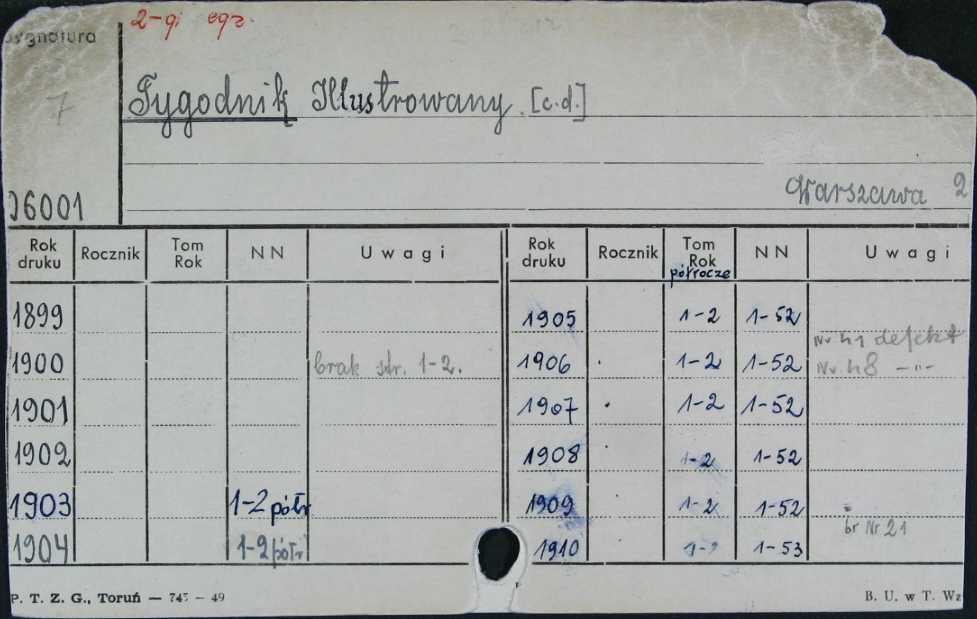 2-gi egz.
sygnatura
7
Tygodnik Illustrowany. [c.d.]
06001
Warszawa 2
Rok druku Rocznik Tom Rok NN Uwagi Rok druku Rocznik Tom Rok półrocze NN Uwagi
1899 1905 1-2 1-52
Nr 41 defekt
1900 brak str. 1-2. 1906 1-2 1-52 Nr. 48 -"-
1901 1907 1-2 1-52
1902 1908 1-2 1-52
1903 1-2 półr 1909 1-2 1-52
br Nr 21
1904 1-2 półr 1910 1-2 1-53
P. T. Z. G., Toruń — 745 — 49 B. U. w T. Wz